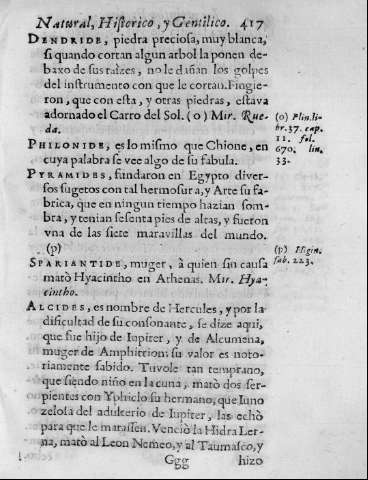 Natural, Historico, y Gentilico. 417
DENDRIDE, piedra preciosa, muy blanca,
si quando cortan algun arbol la ponen de-
baxo de sus raìzes, no le dañan los golpes
del instrumento con que le cortan. Fingie-
ron, que con esta, y otras piedras, estava
adornado el Carro del Sol. (o) Mir. Rue-
da.
(o) Plin. li-
br. 37. cap.
11. fol.
670. lin.
33.
PHILONIDE, es lo mismo que Chione, en
cuya palabra se vee algo de su fabula.
PYRAMIDES, fundaron en Egypto diver-
sos sugetos con tal hermosura, y Arte su fa-
brica, que en ningun tiempo hazian som-
bra, y tenian sesenta pies de altas, y fueron
vna de las siete maravillas del mundo.
(p)
(p) Higin.
fab. 223.
SPARIANTIDE, muger, à quien sin causa
matò Hyacintho en Athenas. Mir. Hya-
cintho.
ALCIDES, es nombre de Hercules, y por la
dificultad de su consonante, se dize aqui,
que fue hijo de Iupiter, y de Alcumena,
muger de Amphitrion: su valor es noto-
riamente sabido. Tuvole tan temprano,
que siendo niño en la cuna, matò dos ser-
pientes con Yphiclo su hermano, que Iuno
zelosa del adulterio de Iupiter, las echò
para que le matassen. Venciò la Hidra Ler-
na, matò al Leon Nemeo, y al Taumasco, y
Ggg hizo